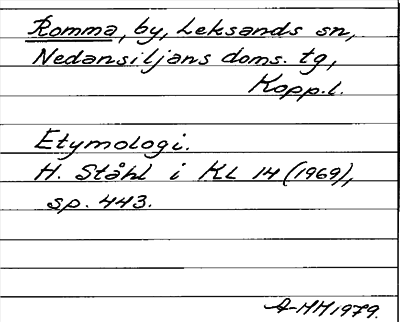 Romma, by, Leksands sn,
Nedansiljans doms. tg,
Kopp.l.
Etymologi.
H. Ståhl i KL 14 (1969),
sp. 443.
A-MH 1979.